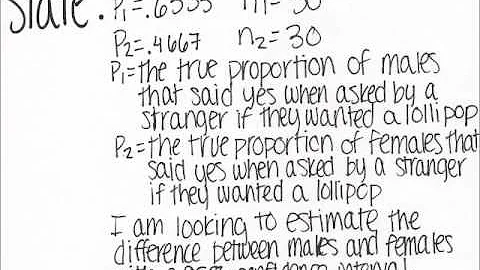 State:
P₁=.6333 n₁=30
P₂=.4667 n₂=30
P₁=the true proportion of males
that said yes when asked by a
stranger if they wanted a lollipop
P₂=the true proportion of females that
said yes when asked by a stranger
if they wanted a lollipop
I am looking to estimate the
difference between males and females
confidence interval